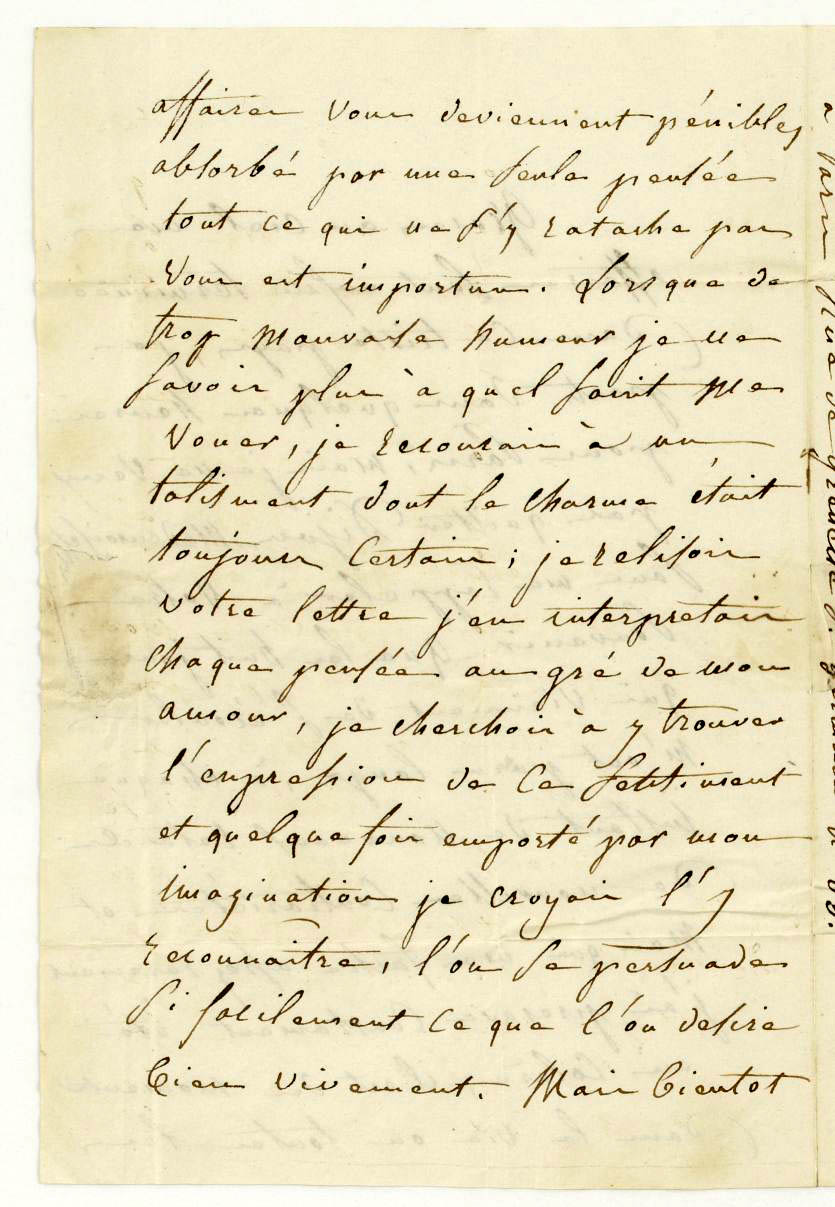 affaires vous deviennent pénibles,
absorbé par une seule pensée
tout ce qui ne s'y ratache pas
vous est importun. Lorsque de
trop mauvaise humeur je ne
savois plus à quel saint me
vouer, je recourais à un
talisment dont le charme était
toujours certain ; je relisois
votre lettre j'en interpretais
chaque pensée au gré de mon
amour, je cherchois à y trouver
l'expression de ce sentiment
et quelque fois emporté par mon
imagination je croyois l'y
reconnaître, l'on se persuade
si facilement ce que l'on desire
bien vivement. Mais bientot